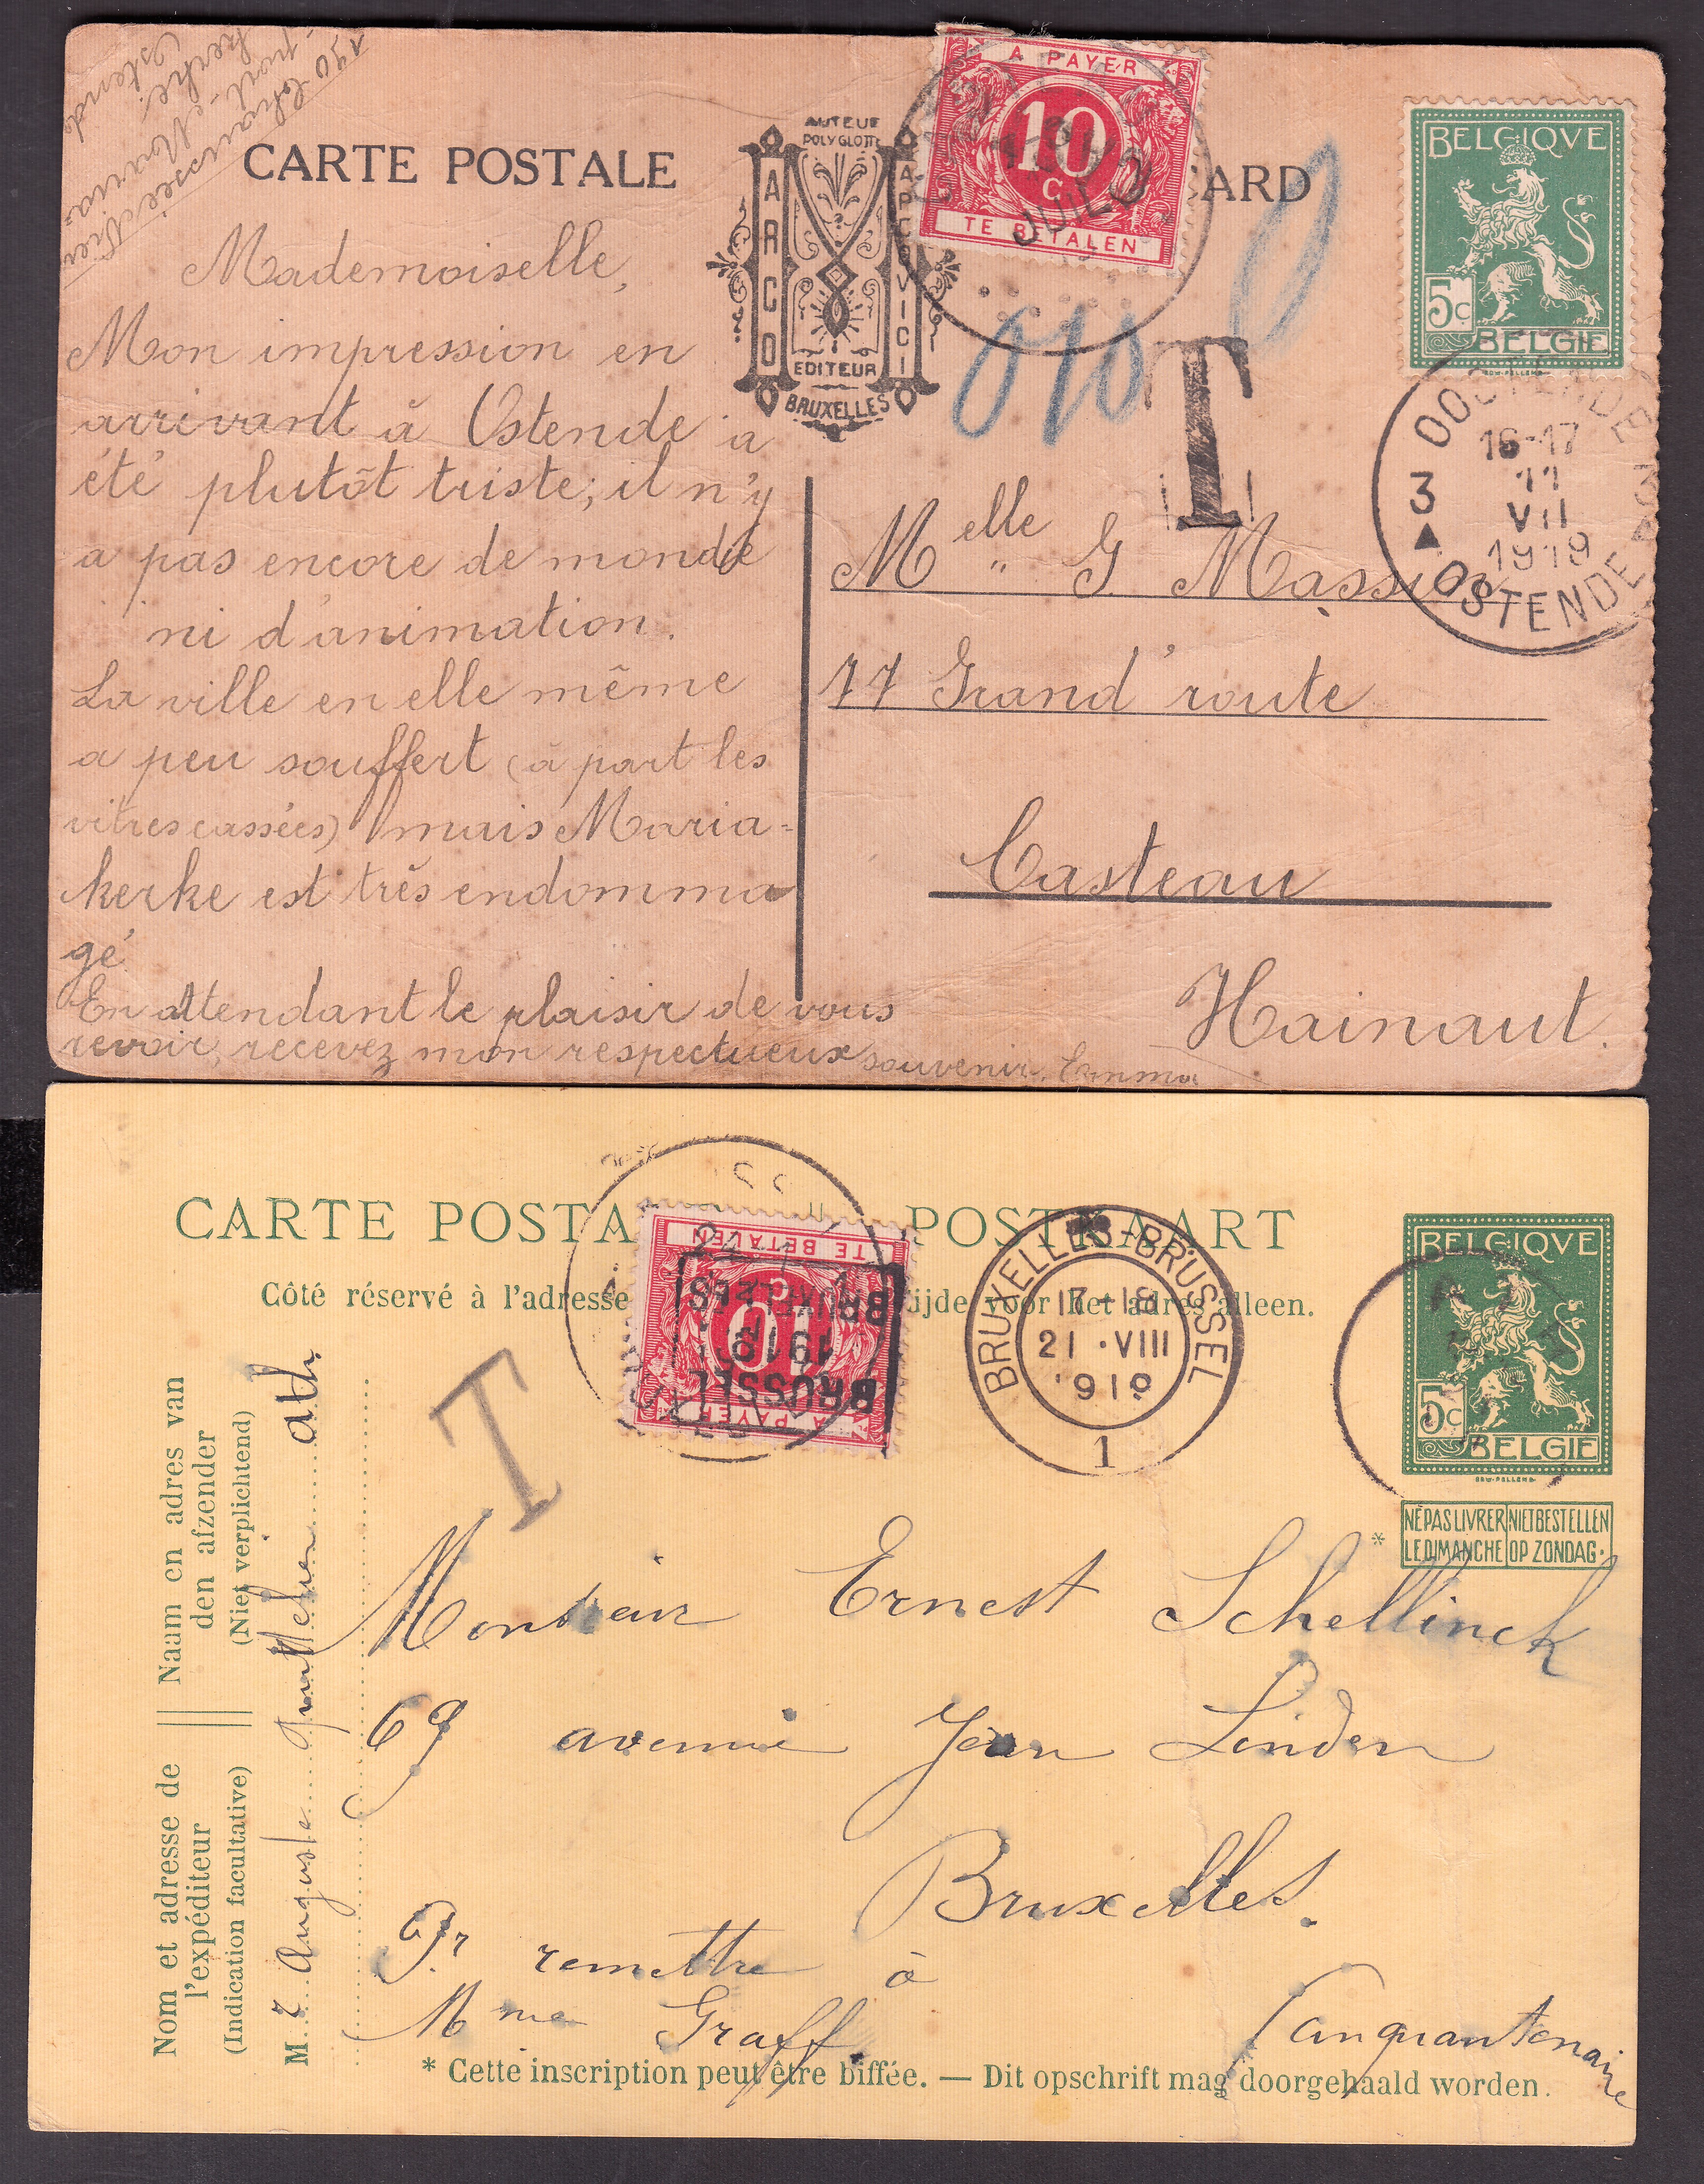 190 Chaussée Nieu
-port - Maria-
kerke.
Ostende
CARTE POSTALE
AUTEUR
POLYGLOTTE
ARCO
APCOVICI
EDITEUR
BRUXELLES
A PAYER
10
C
TE BETALEN
JUIL
ARD
BELGIQVE
5C
BELGIE
T
010
OOSTENDE
3 3
16-17
11
VII
1919
OSTENDE
Mademoiselle,
Mon impression en
arrivant à Ostende a
été plutôt triste; il n'y
a pas encore de monde
ni d'animation.
La ville en elle même
a peu souffert (à part les
vitres cassées) mais Maria-
kerke est très endomma
gé
En attendant le plaisir de vous
revoir, recevez mon respectueux souvenir. Emma
Melle G. Massion
77 Grand'route
Casteau
Hainaut.
CARTE POSTA
POSTKAART
Côté réservé à l'adresse
ijde voor het adres alleen.
TE BETALEN
10
C
A PAYER
BRUXELLES
1919
BRUSSEL
BRUXELLES-BRUSSEL
17-18
21 ·VIII
1919
1
BELGIQVE
5C
BELGIE
NE PAS LIVRER NIET BESTELLEN
* LE DIMANCHE OP ZONDAG.
T
Naam en adres van
den afzender
(Niet verplichtend)
Nom et adresse de
l'expéditeur
(Indication facultative)
M. r Auguste ath
Monsieur Ernest Schellinck
69 avenue Jean Linden
Bruxelles.
Pr remettre à
Mme Graff.
Cinquantenaire
* Cette inscription peut être biffée. — Dit opschrift mag doorgehaald worden.